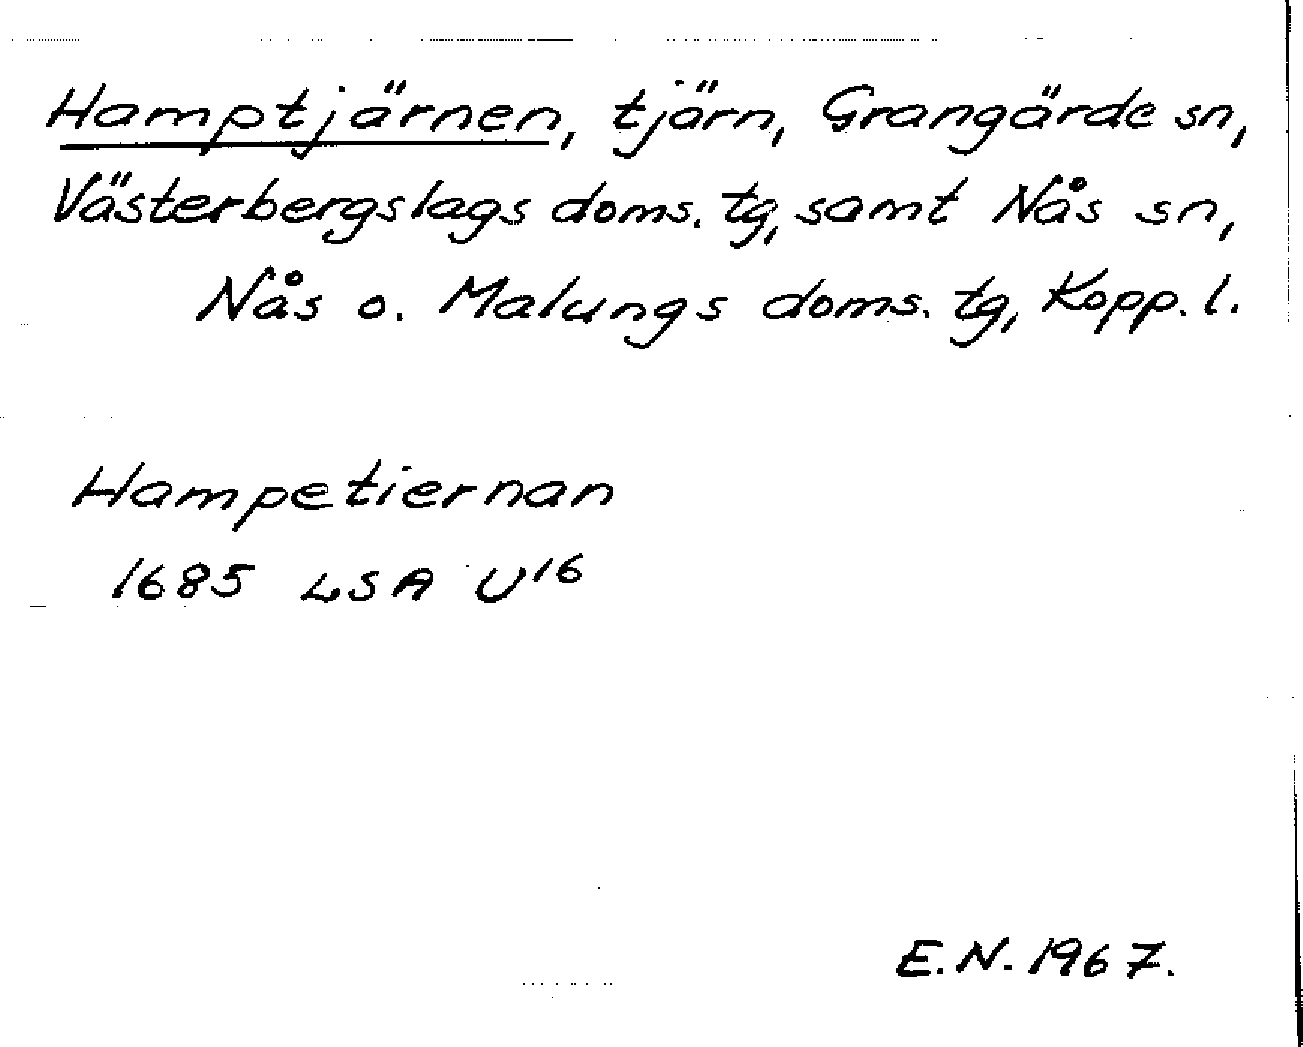 Hamptjärnen, tjärn, Grangärde sn,
Västerbergslags doms. tg, samt Nås sn,
Nås o. Malungs doms. tg, Kopp. l.
Hampetiernan
1685 LSA U16
E.N. 1967.